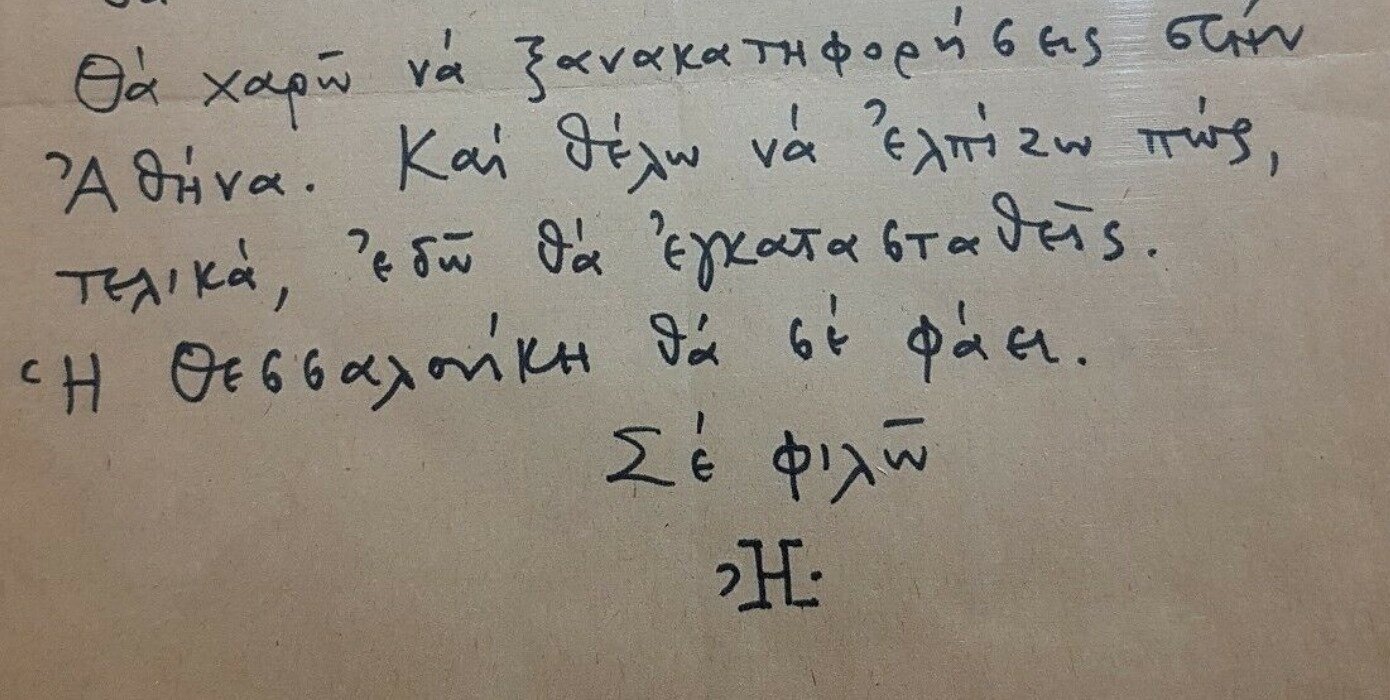 Θά χαρῶ νά ξανακατηφορήσεις στήν
Ἀθήνα. Καί θέλω νά ἐλπίζω πώς,
τελικά, ἐδῶ θά ἐγκατασταθεῖς.
Ἡ Θεσσαλονίκη θά σέ φάει.
Σέ φιλῶ
Ἠ.